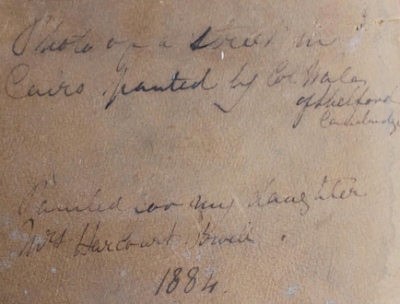 Photo of a street in
Cairo painted by Col Wale
of Shelford
Cambridge
Painted for my daughter
Mrs Harcourt
1884.